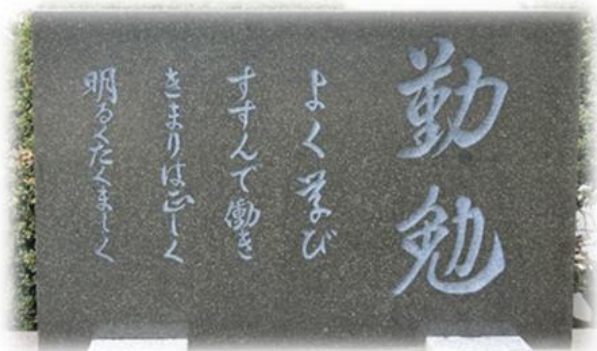 勤勉
よく学び
すすんで働き
きまりは正しく
明るくたくましく